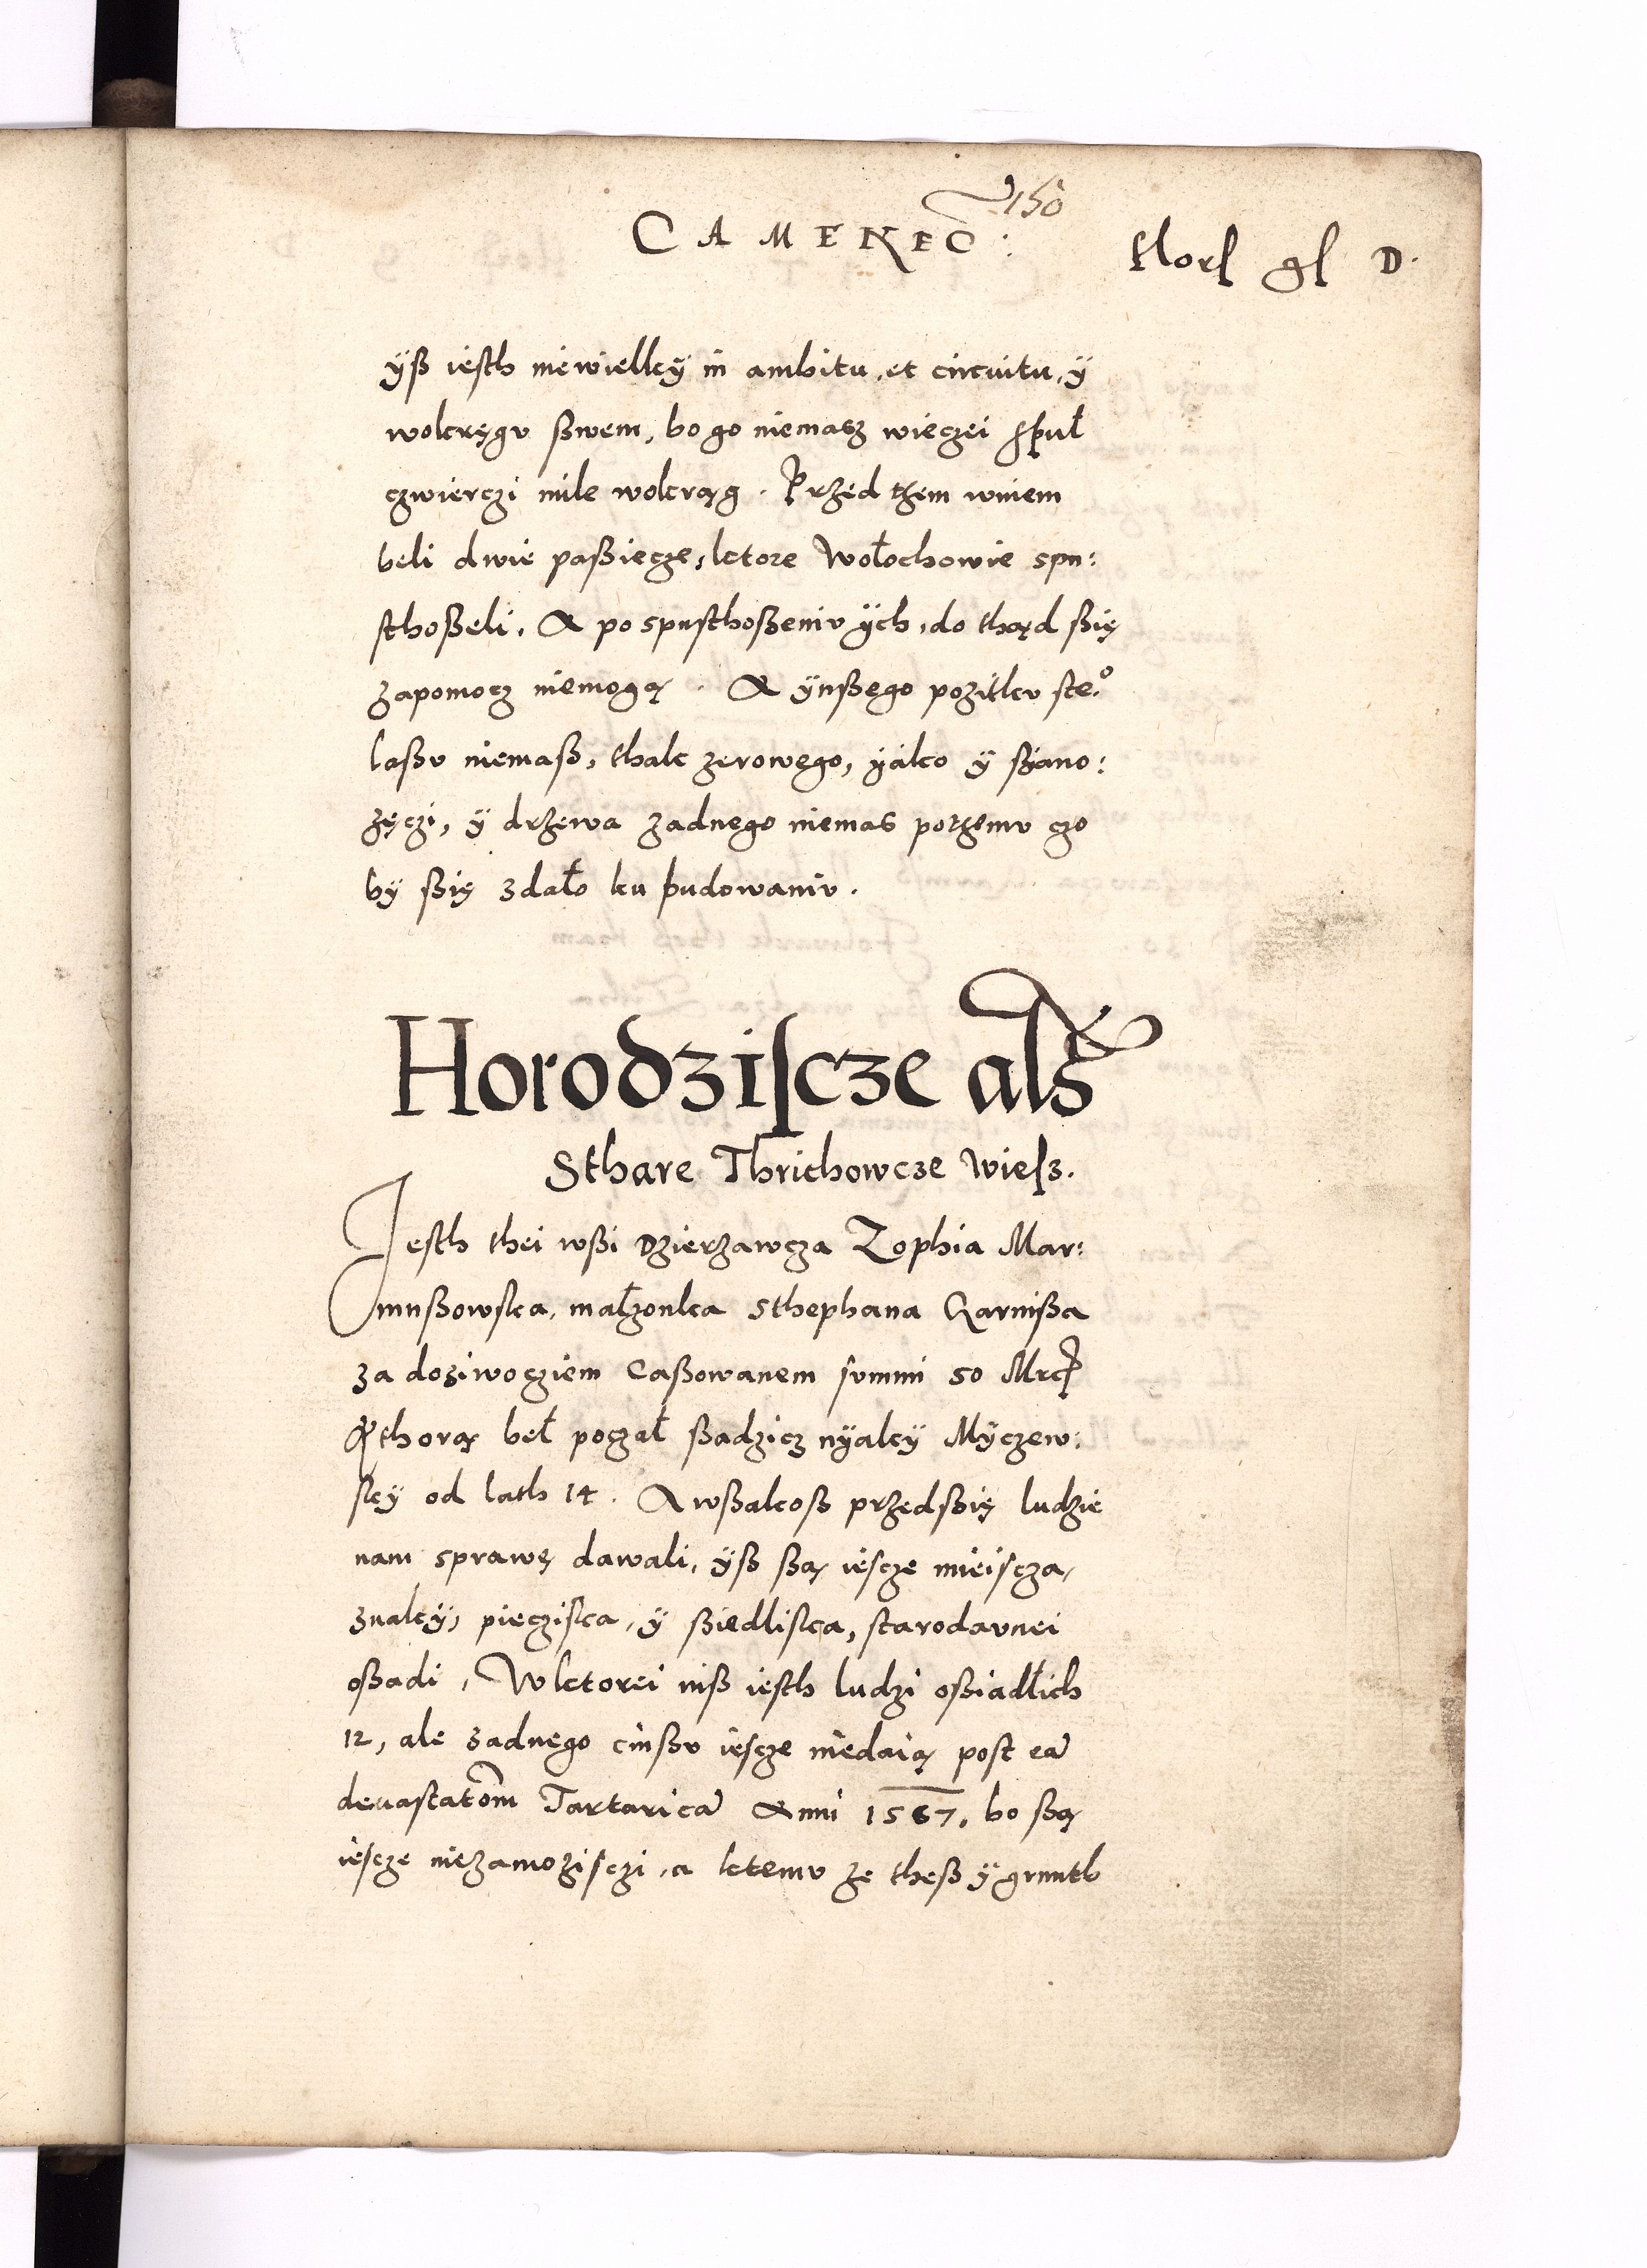 150
CAMENEC: florſ gſ D.
ÿß iesth niewielkÿ in ambitu, et circuitu, ÿ
wokręgv ßwem, bo go niemasz wieczei spuł
czwierczi mile wokrąg. Przed tzem wniem
beli dwie paßiecze, ktore Wołochowie spu:
sthoßeli. A po spusthoßeniv ÿch, do thąd ßię
zapomocz niemogą. A ÿnßego pozitkv ste.º
laßv niemaß, thak zerowego, ÿako ÿ ßiano:
zęczi, ÿ drzewa zadnego niemas potzemv czo
bÿ ßię zdało ku budowaniv.
Horodziscze als
Sthare Thrichowcze Wiesz.
Jesth thei wßi Dzierzawcza Zophia Mar:
mußowska, małzonka Sthephana Karnißa
za doziwocziem Caßowanem summi 50 Mrcꝝ
Qthorą beł poczał ßadzicz nÿakÿ Mÿczew:
skÿ od lath 14. A wßakoß przedßię ludzie
nam sprawę dawali, ÿß ßą iescze mieiscza,
znakÿ, pieczisca, ÿ ßiedlisca, starodavnei
oßadi, Wktorei niß iesth ludzi oßiadłich
12, ale zadnego cinßv iescze niedaią post eā
deuastatōm Tartaricā Anni 1567. bo ßą
iescze niezamozisczi, a ktemv ze theß ÿ grunth